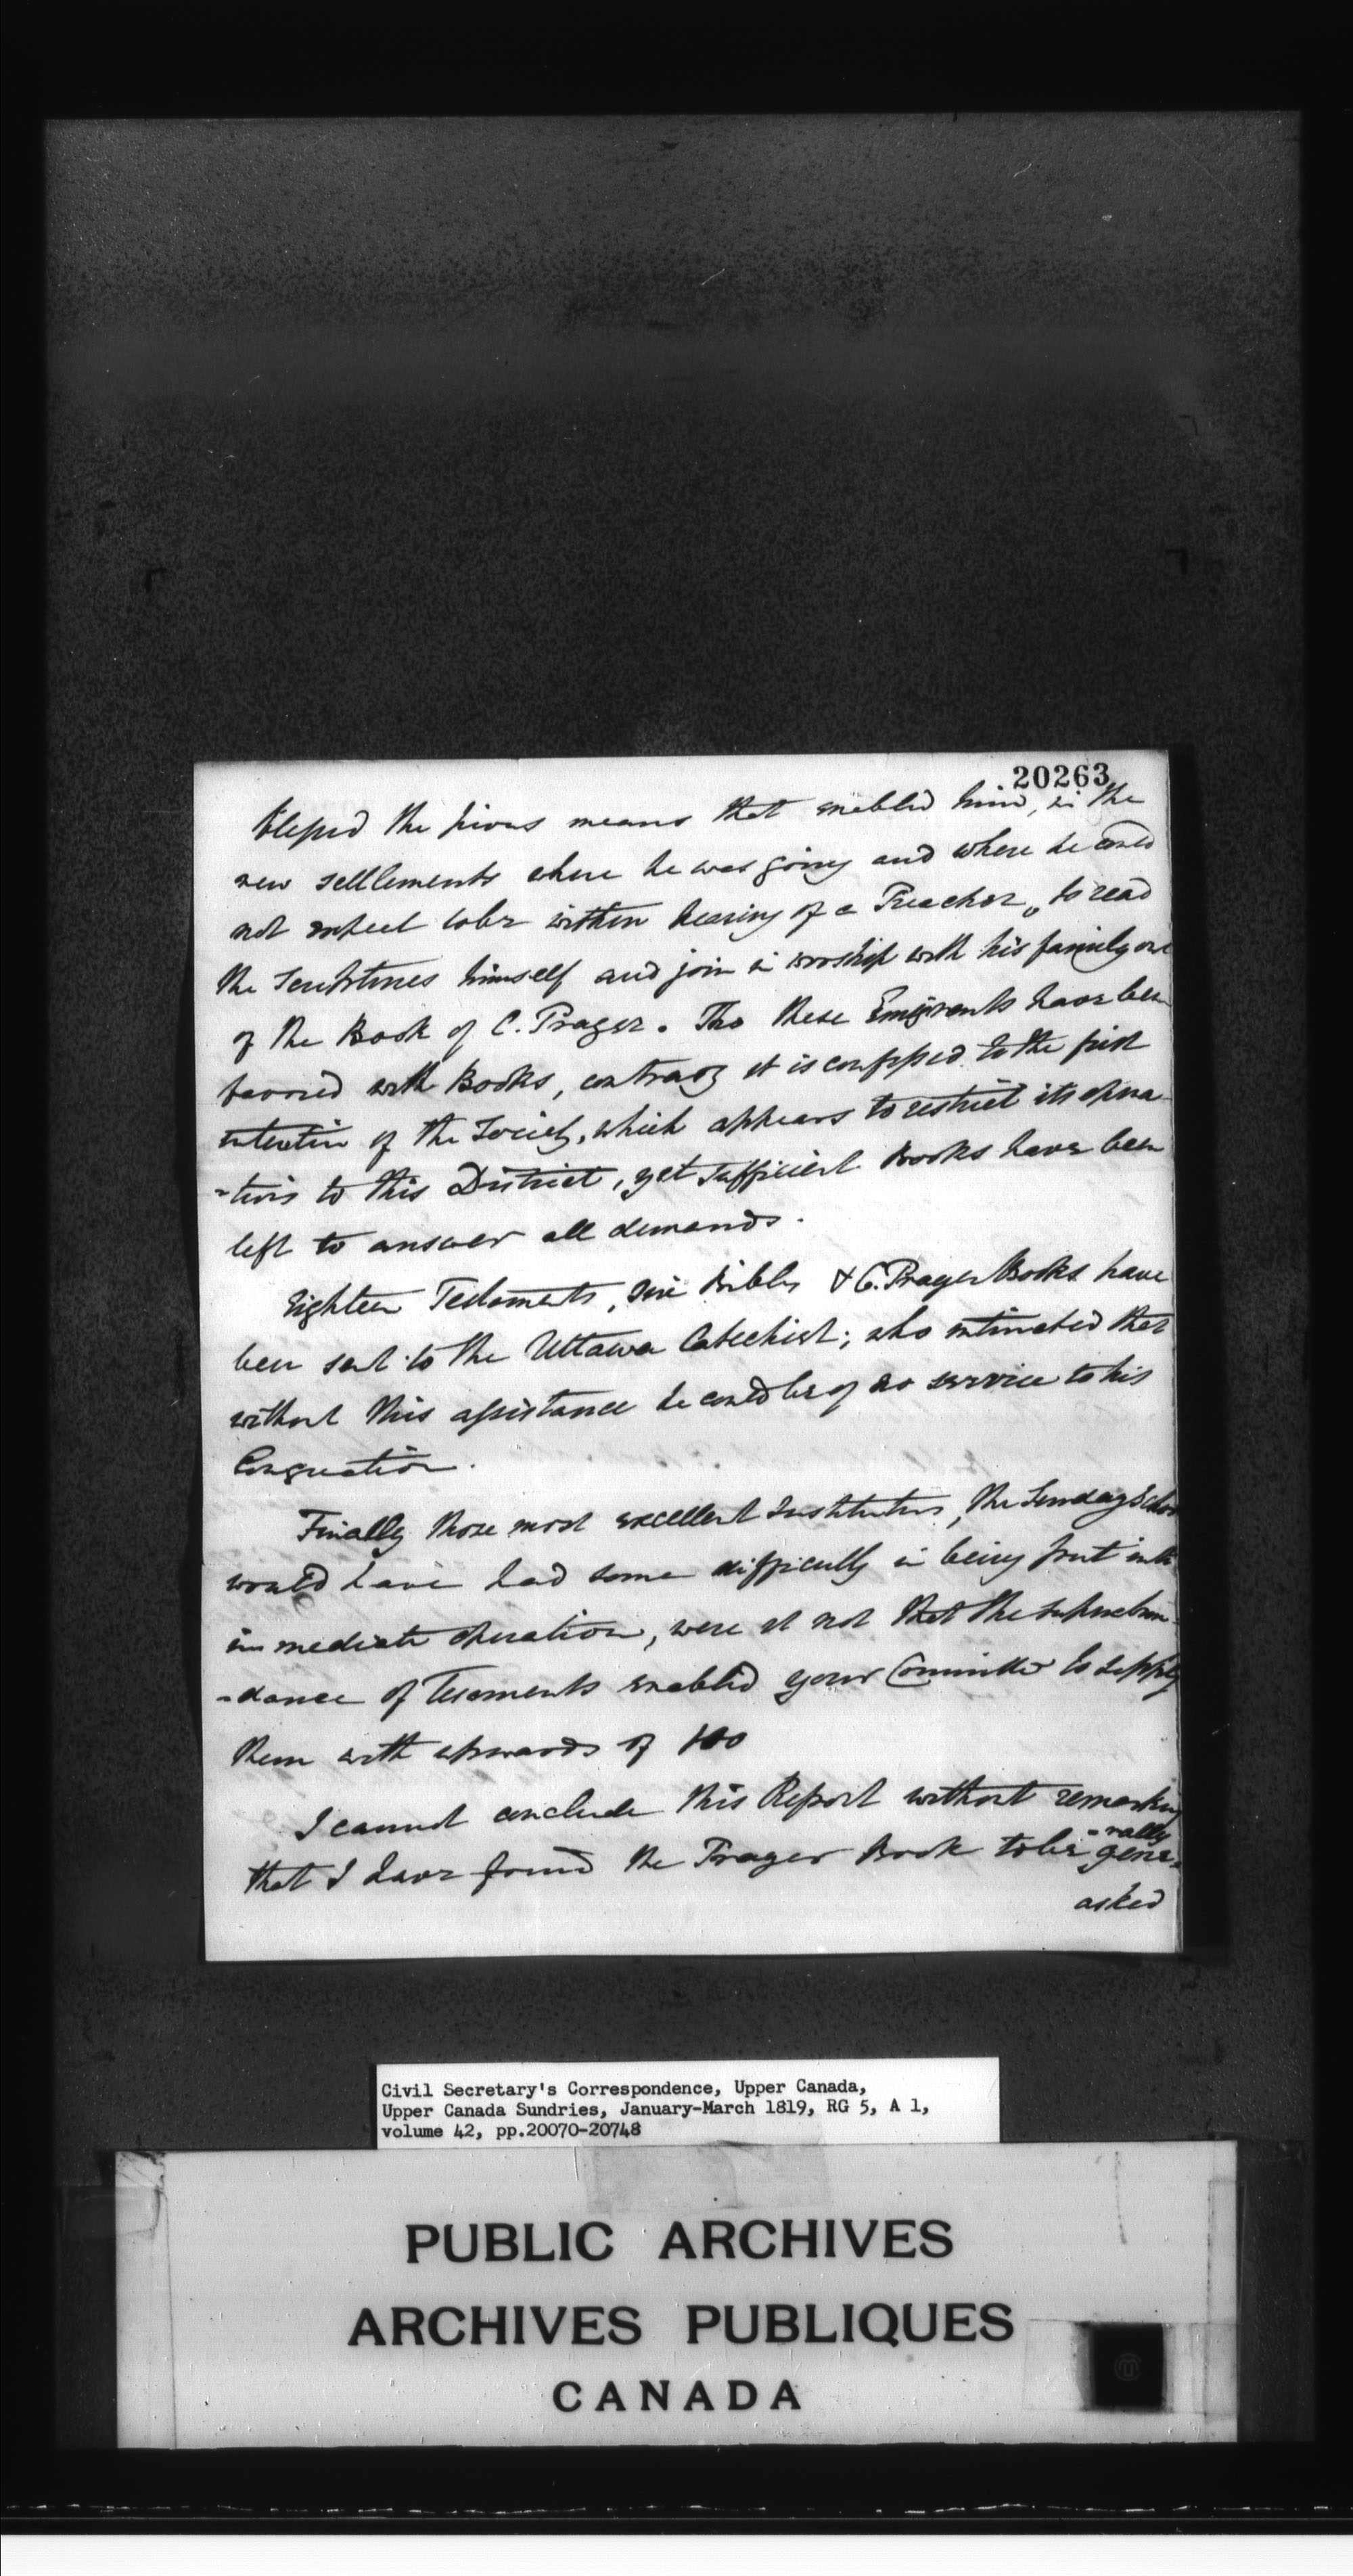 20263
blessed the pious means that enabled him, in the
new settlements where he was going and where he could
not expect to be within hearing of a Preacher, to read
the Scriptures himself and join in worship with his family out
of the Book of C. Prayer. Tho these Emigrants have been
favored with Books, contrary it is confessed to the first
intention of the Society, which appears to restrict its opera-
-tions to this District, yet sufficient Books have been
left to answer all demands.
Eighteen Testaments, Bibles & C. Prayer Books have
been sent to the Uttawa Catechist; who intimated that
without this assistance he could be of no service to his
Congregation.
Finally those most excellent Institutions, the Sunday Schools
would have had some difficulty in being put into
immediate operation, were it not that the superabun-
-dance of Tesaments enabled your Committee to supply
them with upwards of 100
I cannot conclude this Report without remarking
that I have found the Prayer Book to be gene-
-rally
asked
Civil Secretary's Correspondence, Upper Canada,
Upper Canada Sundries, January-March 1819, RG 5, A 1,
volume 42, pp.20070-20748
PUBLIC ARCHIVES
ARCHIVES PUBLIQUES
CANADA